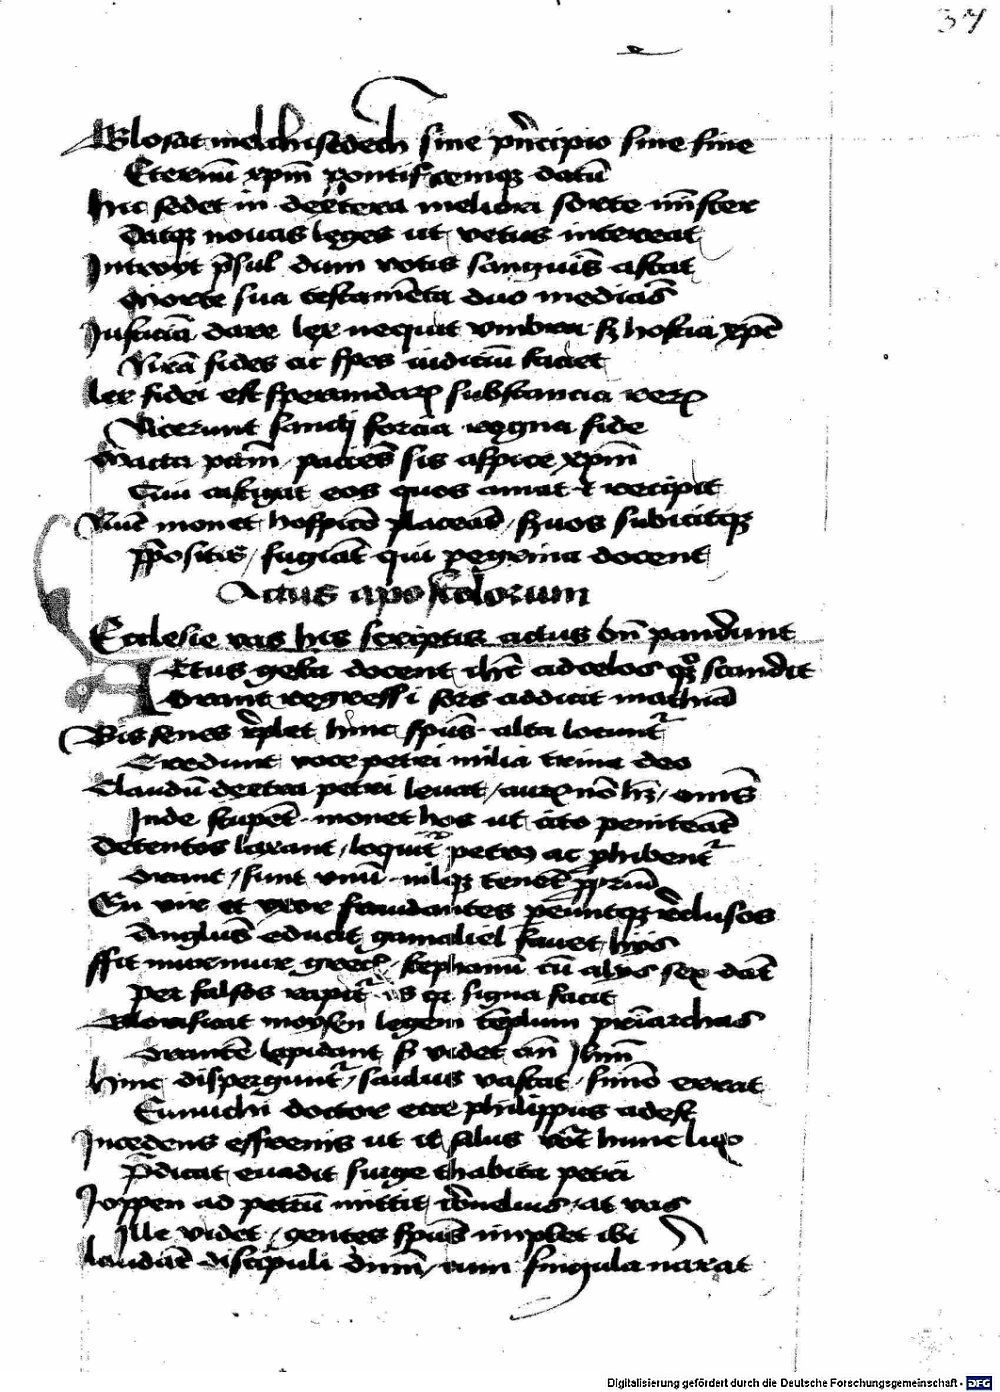 37
Glosat melchisedech sine pͥncipio sine fine
Eternū xpm̄ pontificemqꝫ datū
hic sedet in dextera meliori sorte mister
Datqꝫ nouas leges ut vetus intereat
Introyt p̄sul dum votis sanguīs astat
Morte sua testamēta duo medians
Iusticiā dare lex nequit vmbra sꝫ hostia xpi
Nr̄ā fides ac spes iudiciū faciet
lex fidei est sperandaꝝ substancia reꝝ
Vicerunt sancti forcia regna fide
pacies sis aspice xpm̄
Qui castigat eos quos amat et recipit
monet hospites placeāt sꝫ uos subicitqꝫ
Ꝓpositis fugiāt qui pegrina docent
Actus apostolorum
Ecclesie vas his scriptis actus dn̄i pandunt
Actus gesta docent ihc̄ ad celos qꝫ scandit
Orant regressi sors addicat mathiā
Bis senos replet hinc spūs alta locuntᷣ
Credunt voce petri milia trina deo
Claudū dextra petri leuat auꝝ nō hꝫ omīs
Inde stupēt monet hos ut cito peniteāt
Detentos laxant loquitᷣ petrꝰ ac phibentᷣ
Orant sunt vnū nilqꝫ tenet ꝓpriū
En vir et vxor fraudantes reclusos
Anglus educit gamaliel fauet hijs
ffit murmur grecis stephanū cū alijs sex dāt
Per falsos rapitᷣ is qꝛ signa facit
Glorificat moysen legem templum priarchas
Orantē lapidant sꝫ videt ihm̄
hinc disperguntᷣ saulus vastat simō errat
Eunuchi doctor ecce philippus adest
Incedens effrenis ut it saulus hunc lux
Predicat euadit surge thabita petri
Ioppen ad petrū mittit cornelius at vas
Ille videt gentes spūs implet ibi
laudāt discipuli dnm̄ cum singula narat
Digitalisierung gefördert durch die Deutsche Forschungsgemeinschaft - DFG